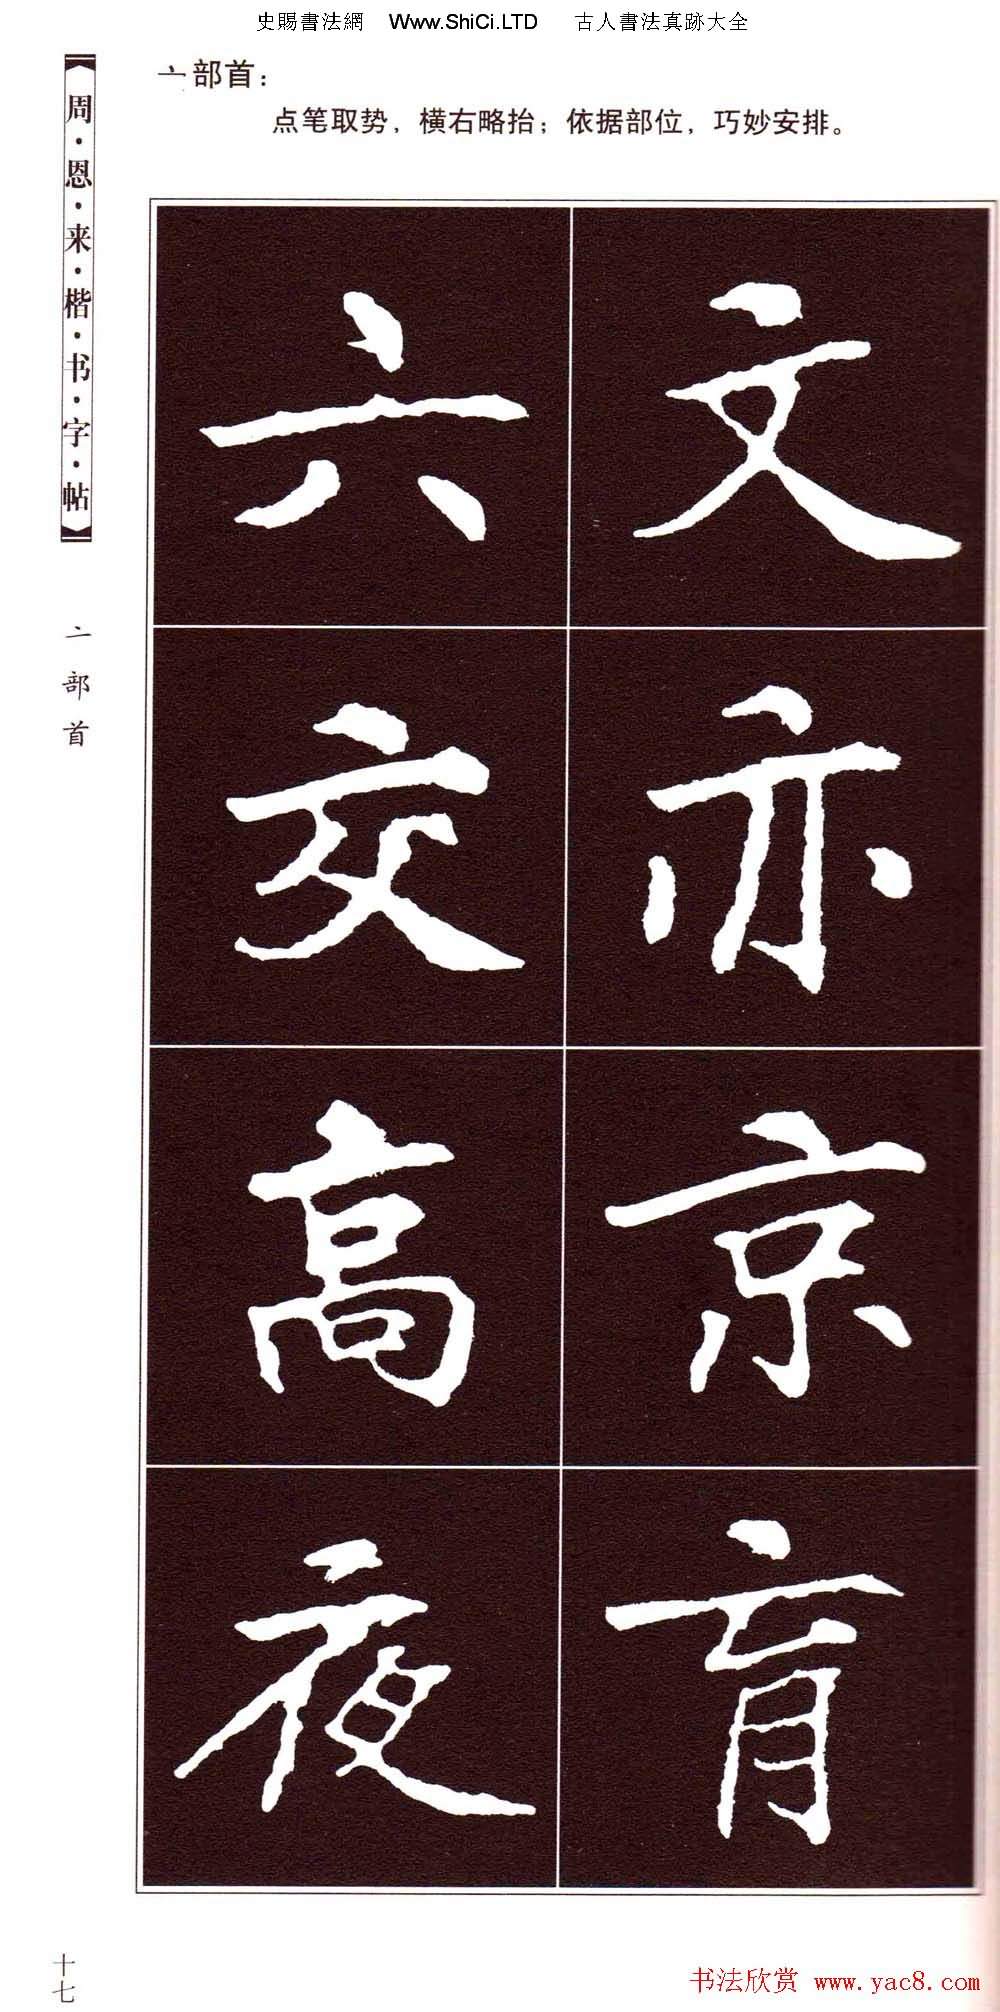 史賜書法網 Www.ShiCi.LTD 古人書法真跡大全
亠部首：
点笔取势，横右略抬；依据部位，巧妙安排。
周·恩·来·楷·书·字·帖
亠部首
六 文
交 亦
高 京
夜 育
十七
书法欣赏 www.yac8.com